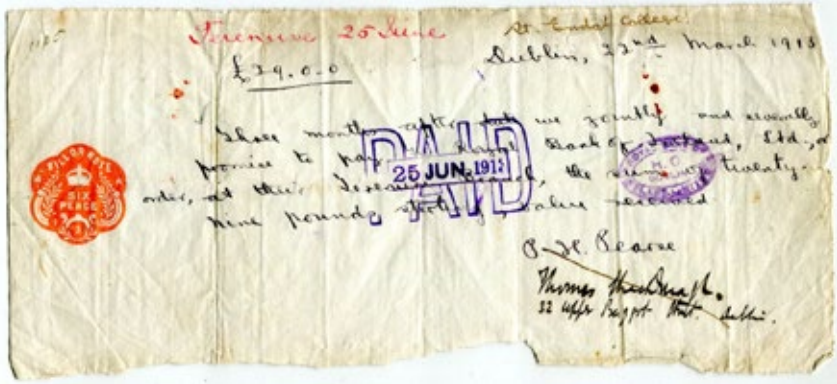 1185
Terenure 25 June
St. Enda's College.
£29.0.0
Dublin, 22nd March 1913
Three months after date we jointly and severally
promise to pay Royal Bank of Ireland, Ltd., or
order, at their Terenure Branch, the sum of twenty-
nine pounds sterling value received
PAID
25 JUN. 1913
BILL OR NOTE
SIX
PENCE
P. H. Pearse
Thomas MacDonagh.
32 Upper Baggot Street. Dublin.